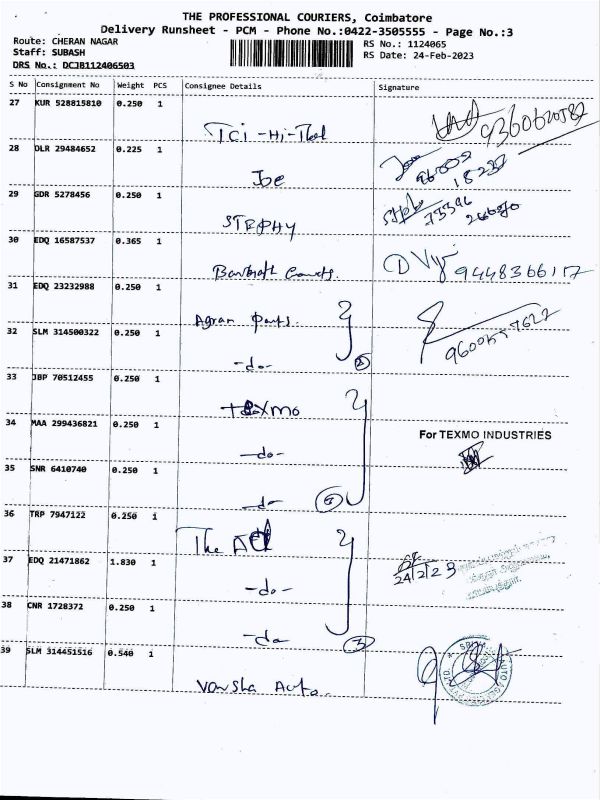 THE PROFESSIONAL COURIERS, Coimbatore
Delivery Runsheet - PCM - Phone No.:0422-3505555 - Page No.:3
Route: CHERAN NAGAR
RS No.: 1124065
Staff: SUBASH
RS Date: 24-Feb-2023
DRS No.: DCJB112406503
S No Consignment No Weight PCS Consignee Details Signature
27 KUR 528815810 0.250 1
TCI -Hi-
28 DLR 29484652 0.225 1
Joe
29 GDR 5278456 0.250 1
STEPHY
30 EDQ 16587537 0.365 1
9448366117
31 EDQ 23232988 0.250 1
32 SLM 314500322 0.250 1
-do- 2
33 JBP 70512455 0.250 1
texmo
34 MAA 299436821 0.250 1
For TEXMO INDUSTRIES
-do-
35 SNR 6410740 0.250 1
-do-
36 TRP 7947122 0.250 1
The
37 EDQ 21471862 1.830 1
24/2/23
-do-
38 CNR 1728372 0.250 1
-do 3
39 SLM 314451516 0.540 1
Varsha Auto.